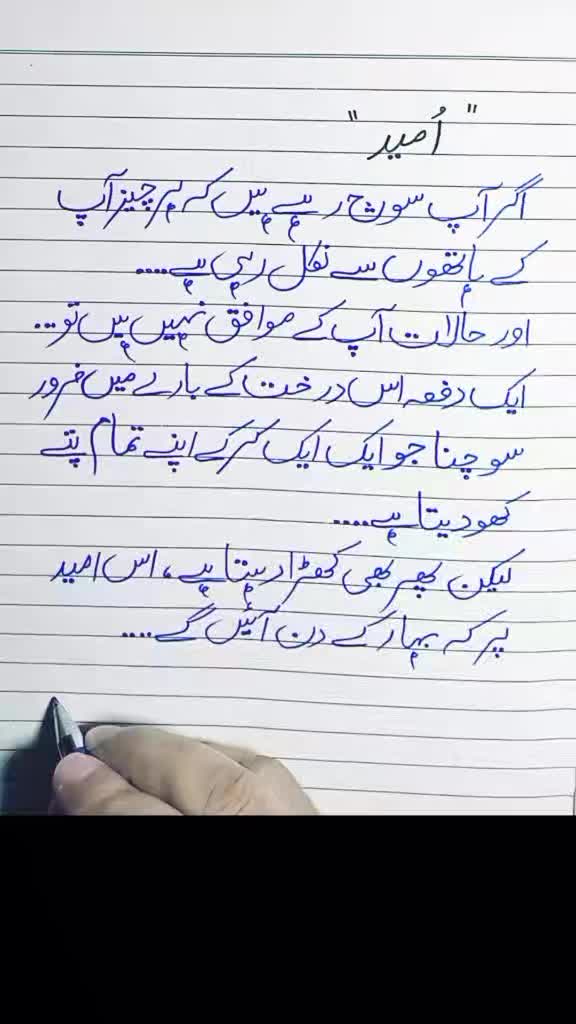 " اُمید "
اگر آپ سوچ رہے ہیں کہ ہر چیز آپ
کے ہاتھوں سے نکل رہی ہے....
اور حالات آپ کے موافق نہیں ہیں تو...
ایک دفعہ اس درخت کے بارے میں ضرور
سوچنا جو ایک ایک کر کے اپنے تمام پتے
کھو دیتا ہے....
لیکن پھر بھی کھڑا رہتا ہے، اس امید
پر کہ بہار کے دن آئیں گے....